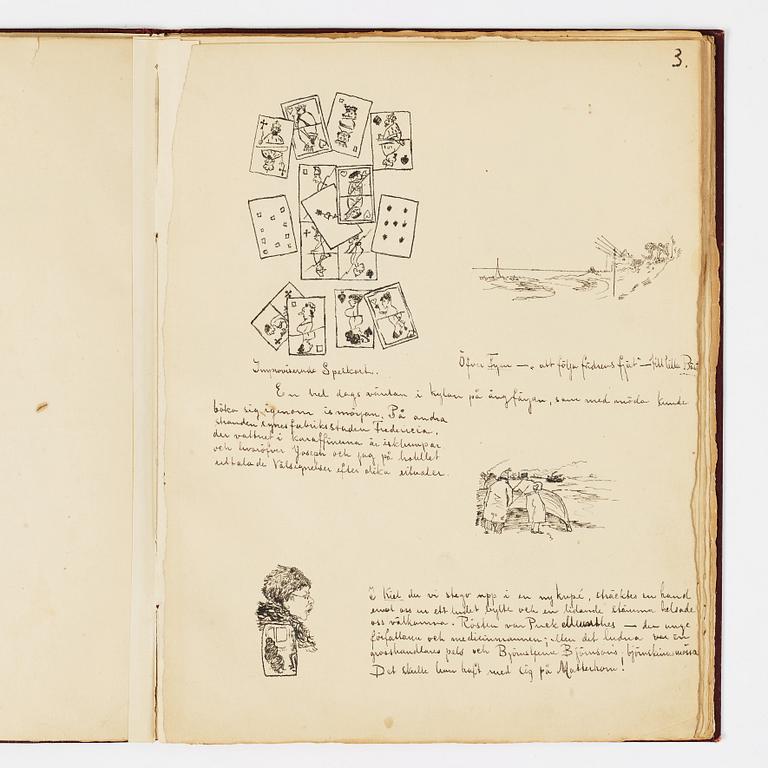 3.
Improviserade Spelkort.
Öfver Fyen — "att följa fädrens fjät" — till lilla
En hel dags väntan i kylan på ångfärjan, som med möda kunde
böka sig igenom ismörjan. På andra
stranden synes fabriksstaden Fredericia,
der vattnet i karaffinerna är isklumpar
och hvaröfver Joseph och jag på hotellet
uttalade Välsignelser efter olika ritualer.
I Kiel du vi stego upp i en ny kupé, sträcktes en hand
emot oss en ett ludet bylte och en lidande stämma helsade
oss välkomna. Rösten var Puck — den unge
författaren och medicinmannen; Men det ludna var en
grosshandlares pels och Björnstjerne Björnsons björnskinnsmössa
Det skulle han haft med sig på Matterhorn!